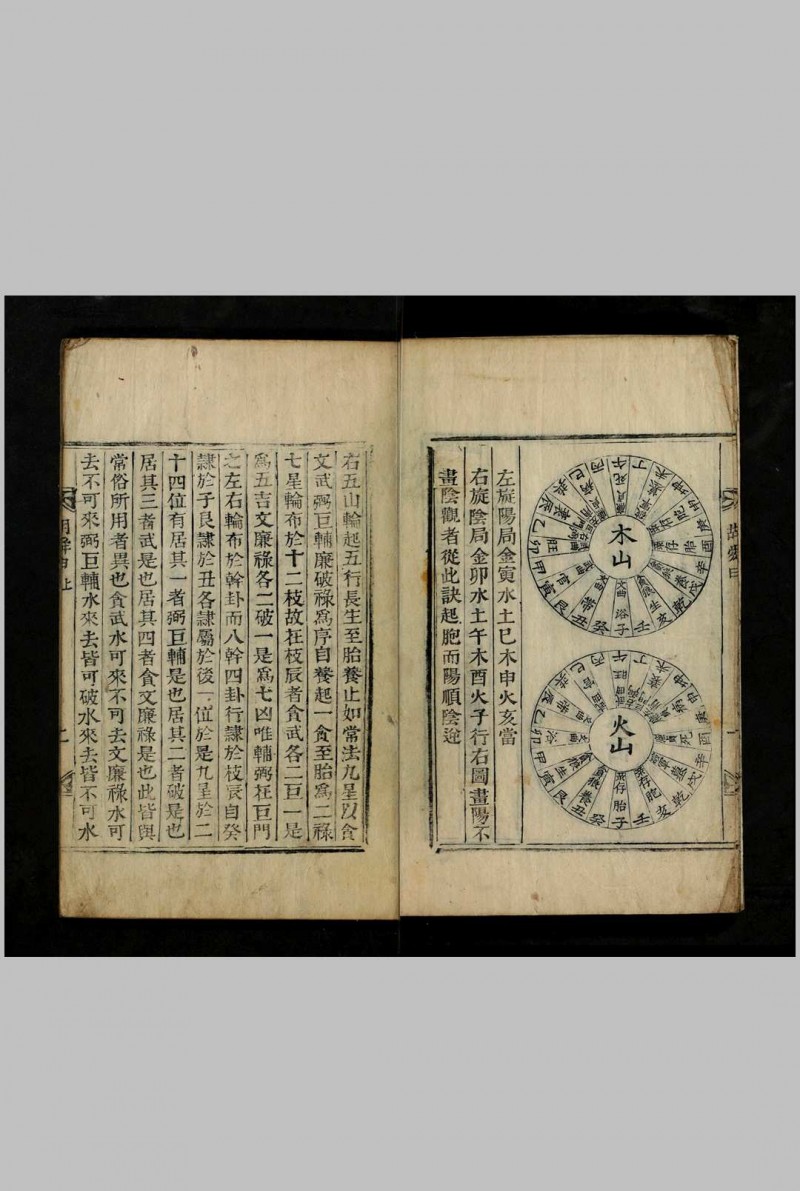 木山
午丁未坤申庚酉辛戌乾亥壬子癸丑艮寅甲卯乙辰巽巳丙
火山
午丁未坤申庚酉辛戌乾亥壬子癸丑艮寅甲卯乙辰巽巳丙
左旋陽局金寅水土巳木申火亥當
右旋陰局金卯水土午木酉火子行右圖畫陽不
畫陰觀者從此訣起胞而陽順陰逆
右五山輪起五行長生至胎養止如常法九星以貪
文武弼巨輔廉破祿爲序自養起一貪至胎爲二祿
七星輪布於十二枝故在枝辰者貪武各二巨一是
爲五吉文廉祿各二破一是爲七凶唯輔弼在巨門
之左右輪布於幹卦而八幹四卦行隷於枝辰自癸
隷於子艮隷於丑各隷屬於後一位於是九星於二
十四位有居其一者弼巨輔是也居其二者破是也
居其三者武是也居其四者貪文廉祿是也此皆與
常俗所用者異也貪武水可來不可去文廉祿水可
去不可來弼巨輔水來去皆可破水來去皆不可水